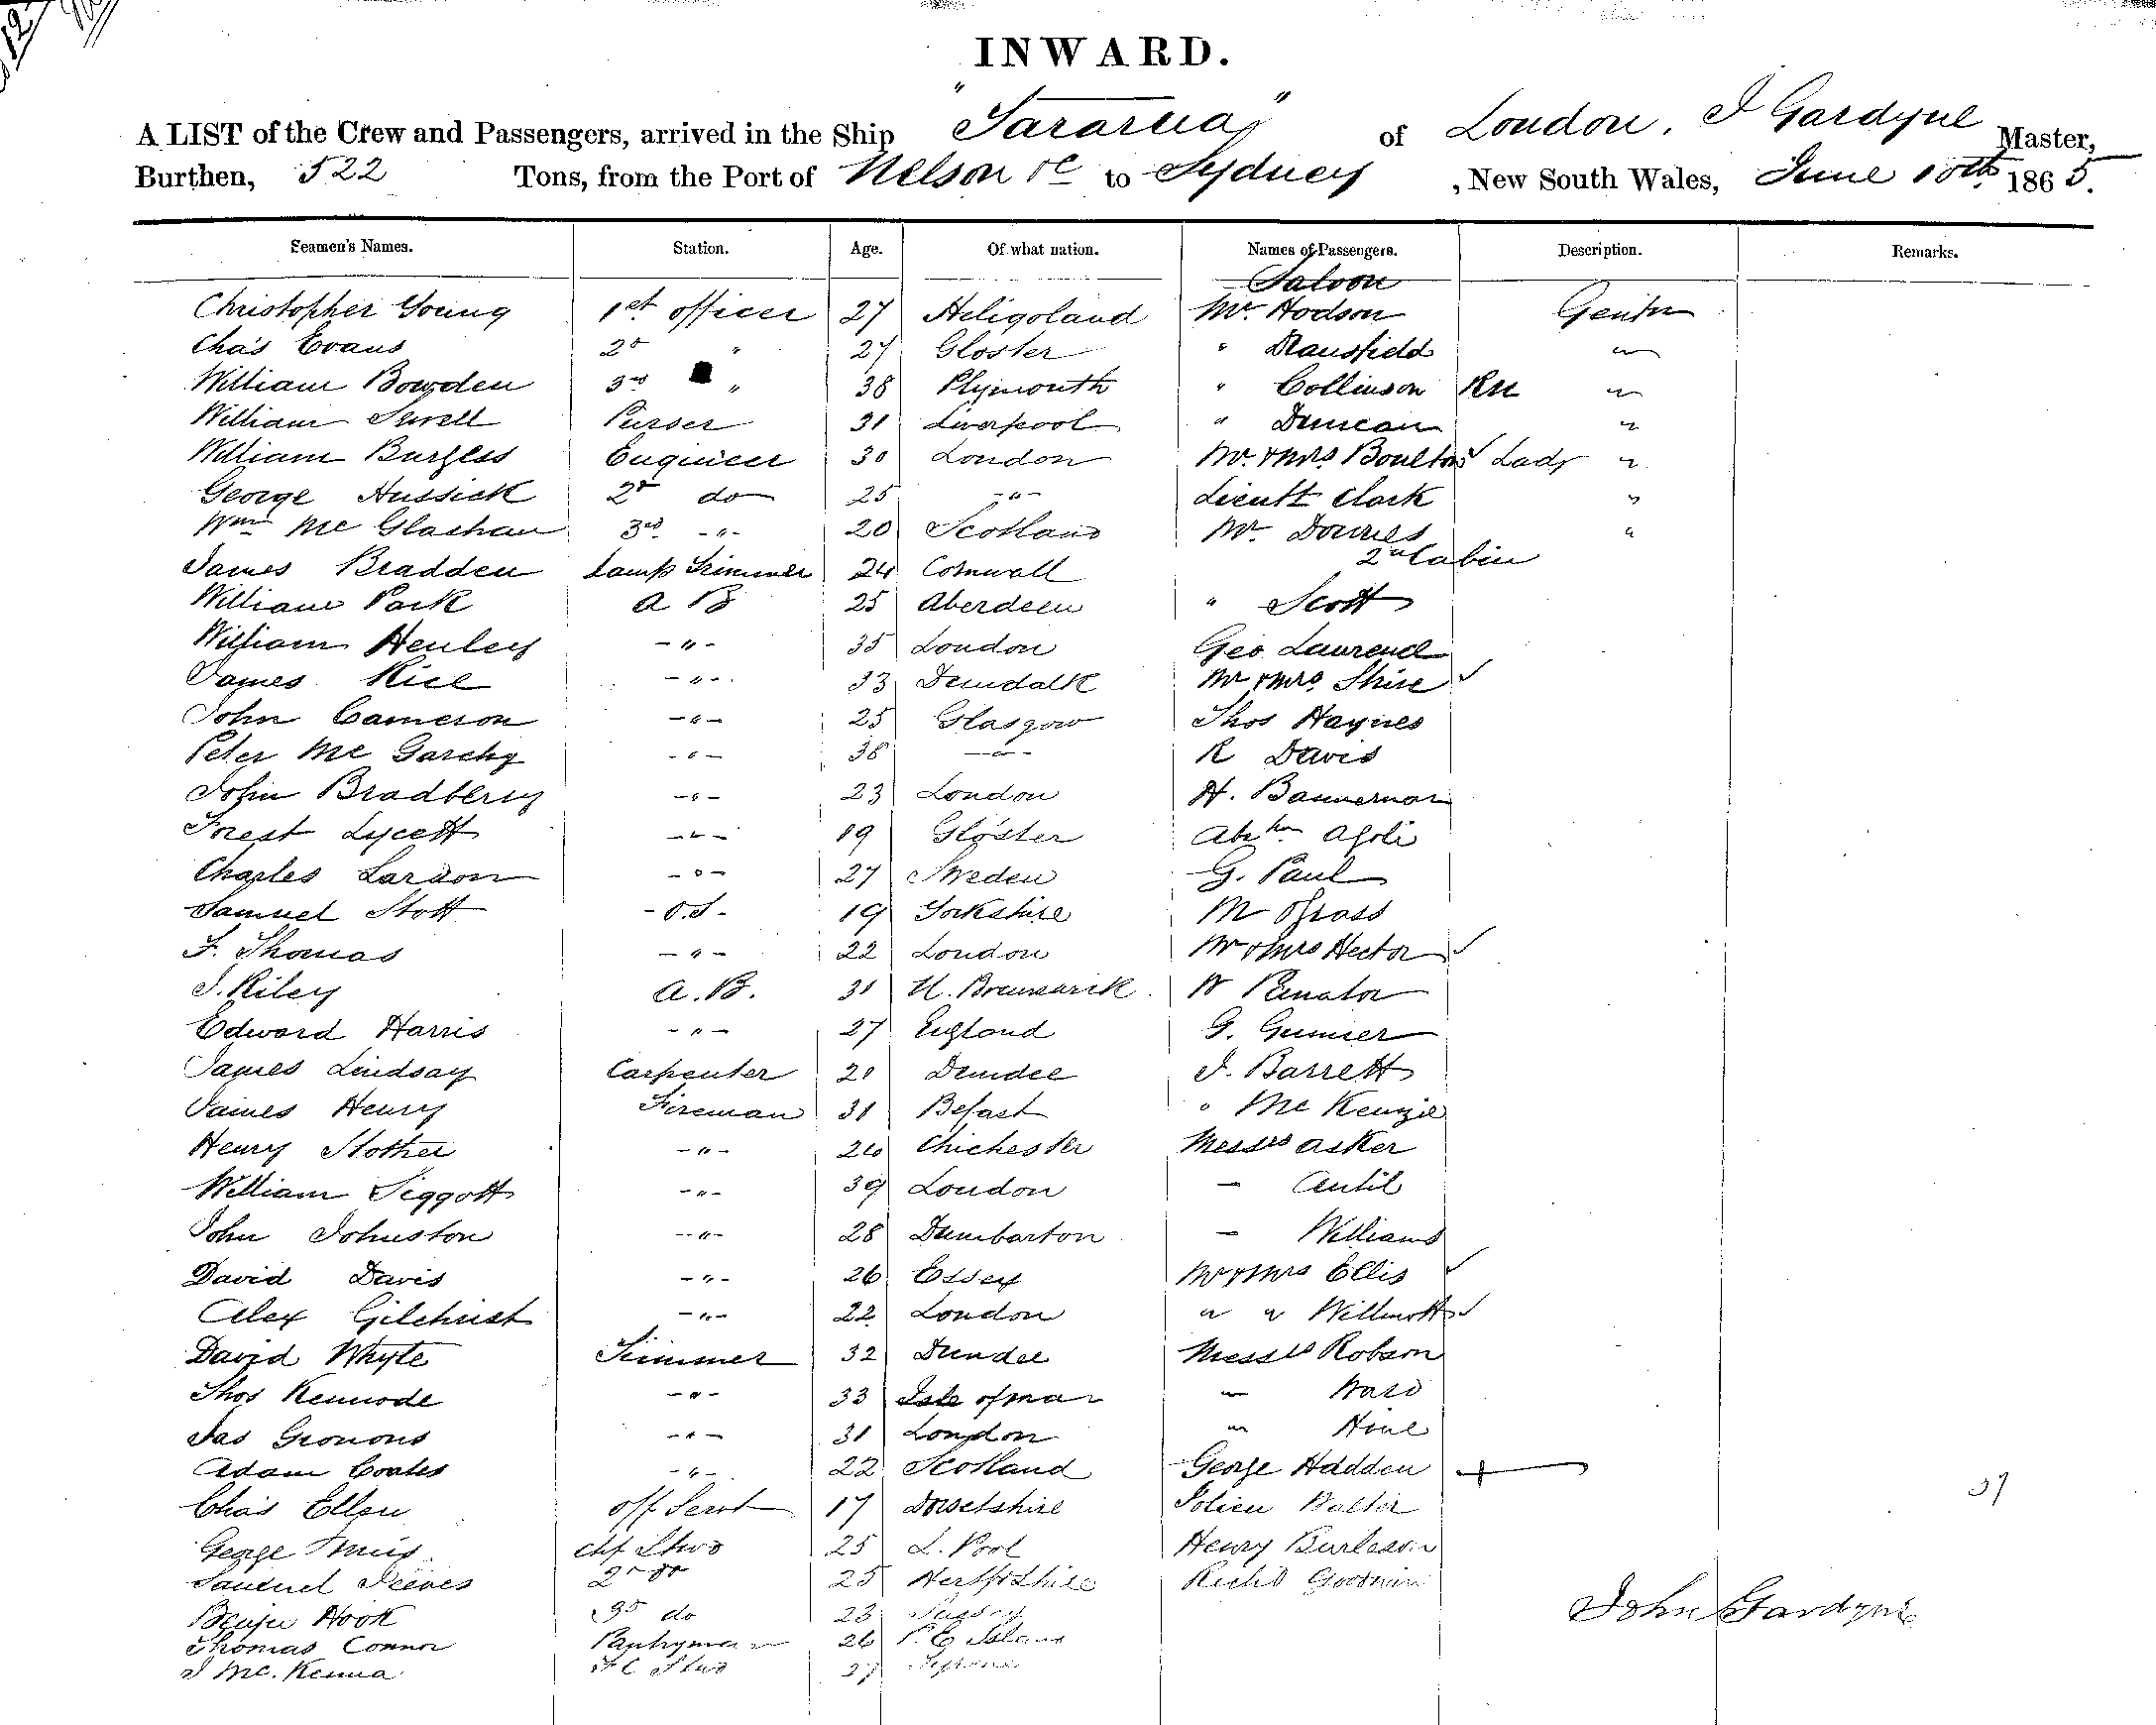 INWARD.
A LIST of the Crew and Passengers, arrived in the Ship "Tararua" of London, J Gardyne Master,
Burthen, 522 Tons, from the Port of Nelson &c to Sydney, New South Wales, June 10th 1865.
Seamen's Names. Station. Age. Of what nation. Names of Passengers. Description. Remarks.
Saloon
Christopher Young 1st officer 27 Heligoland Mr. Hodson Gentn
Chas Evans 2d " 27 Gloster " Mansfield "
William Bowden 3rd " 38 Plymouth " Collinson RM "
William Sewell Purser 31 Liverpool " Duncan "
William Burgess Engineer 30 London Mr. & Mrs Boulton Lady "
George Hussick 2d do 25 " Lieutt Clark "
Wm Mc Glashan 3rd " 20 Scotland Mr. Downes "
2nd Cabin
James Bradden Lamp Trimmer 24 Cornwall
William Park A B 25 Aberdeen " Scott
William Henley " 35 London Geo Laurence
James Rice " 33 Dundalk Mr & Mrs Shire
John Cameron " 25 Glasgow Thos Haynes
Peter Mc Garchy " 38 " R Davis
John Bradbery " 23 London H. Bannerman
Forest Lycett " 19 Gloster Abhm
Charles Larson " 27 Sweden G. Paul
Samuel Stott O.S. 19 Yorkshire M Grass
F. Thomas " 22 London Mr & Mrs Hector
J. Riley A.B. 31 N. Brunswick W
Edward Harris " 27 England G. Gunner
James Lindsay Carpenter 21 Dundee J. Barrett
James Henry Fireman 31 Befast " Mc Kenzie
Henry Stother " 26 Chichester Messrs Asker
William Siggott " 39 London " Antil
John Johnston " 28 Dumbarton " Williams
David Davis " 26 Essex Mr & Mrs Ellis
Alex Gilchrist " 22 London " " Willmott
David Whyte Trimmer 32 Dundee Messrs Robson
Thos Kennode " 33 Isle of man " Ward
Jas Gronons " 31 London " Hine
Adam Coates " 22 Scotland George Hadden
Chas Ellen Off Servt 17 Dorsetshire Walter
George chf Stwd 25 L. Pool Henry Burleson
Samuel Reeves 2nd do 25 Hertfordshire Richd Goodwin
Benjn Hook 3d do 23 Sussex
Thomas Connor Pantryman 26 P. E Island
J Mc. Kenna F C Stwd 27
37
John Gardyne